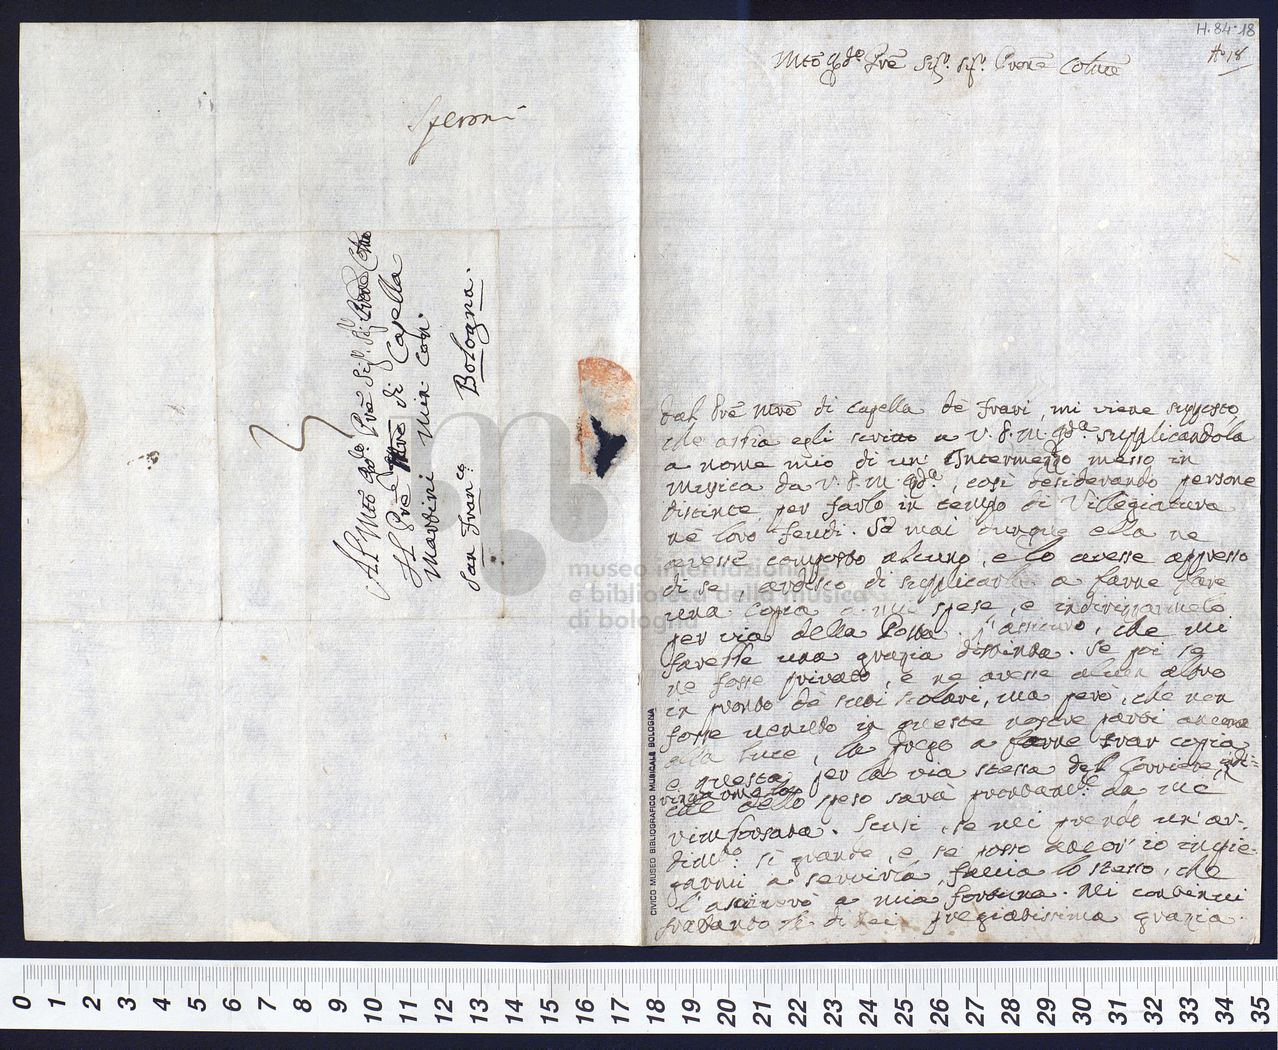 H. 84. 18
N. 18
Mtō Rdo Prē Sigr. Sigr. Prone Colmē
Speroni
Al Mtō Rdo Prē Sigr. Sigr. Prone Colmo
Il Prē Mrō di Capella
Martini Min. Con.
San Franco.
Bologna.
dal Prē Mrō di Capella dè Frari, mi viene supposto,
che abbia egli scritto a V. P. M. Rda supplicandola
a nome mio di un' Intermezzo messo in
musica da V. P. M. Rda, così desiderando persone
distinte per farlo in tempo di Villegiatura
nè loro feudi. Se mai dunque ella ne
avesse composto alcuno, e lo avesse appresso
di se, ardisco di supplicarla a farne fare
una copia a mie spese, e indirizzarmelo
per via della Posta. L'assicuro, che mi
farebbe una grazia distinta. Se poi se
ne fosse privato, e ne avesse alcun altro
in pronto dè suoi scolari, ma però, che non
fosse venuto in queste nostre parti ancora
alla luce, la prego a farne trar copia
e questa per la via stessa del Corriere indi=
rizzarmela,
che dello speso sarà prontamte da me
rimborsata. Scusi, se mi prendo un' ar-
dimto sì grande, e se posso ancor' io impie-
garmi a servirla, faccia lo stesso, che
l'ascriverò a mia fortuna. Mi continui
frattanto la di Lei pregiatissima grazia.
museo internazionale
e biblioteca della musica
di bologna
CIVICO MUSEO BIBLIOGRAFICO MUSICALE BOLOGNA
0 1 2 3 4 5 6 7 8 9 10 11 12 13 14 15 16 17 18 19 20 21 22 23 24 25 26 27 28 29 30 31 32 33 34 35